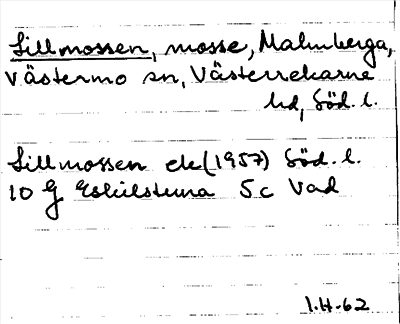 Sillmossen, mosse, Malmberga,
Västermo sn, Västerrekarne
hd, Söd. l.
Sillmossen ek (1957) Söd. l.
10 G Eskilstuna 5c Vad
I.H-62